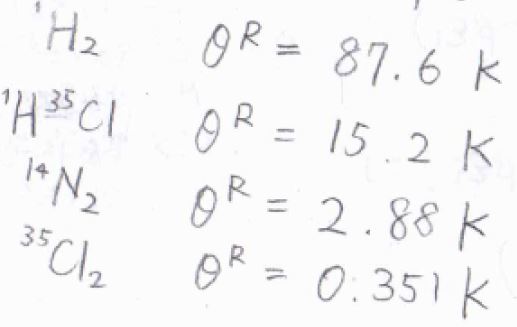 ¹H₂ θᴿ = 87.6 K
¹H³⁵Cl θᴿ = 15.2 K
¹⁴N₂ θᴿ = 2.88 K
³⁵Cl₂ θᴿ = 0.351 K